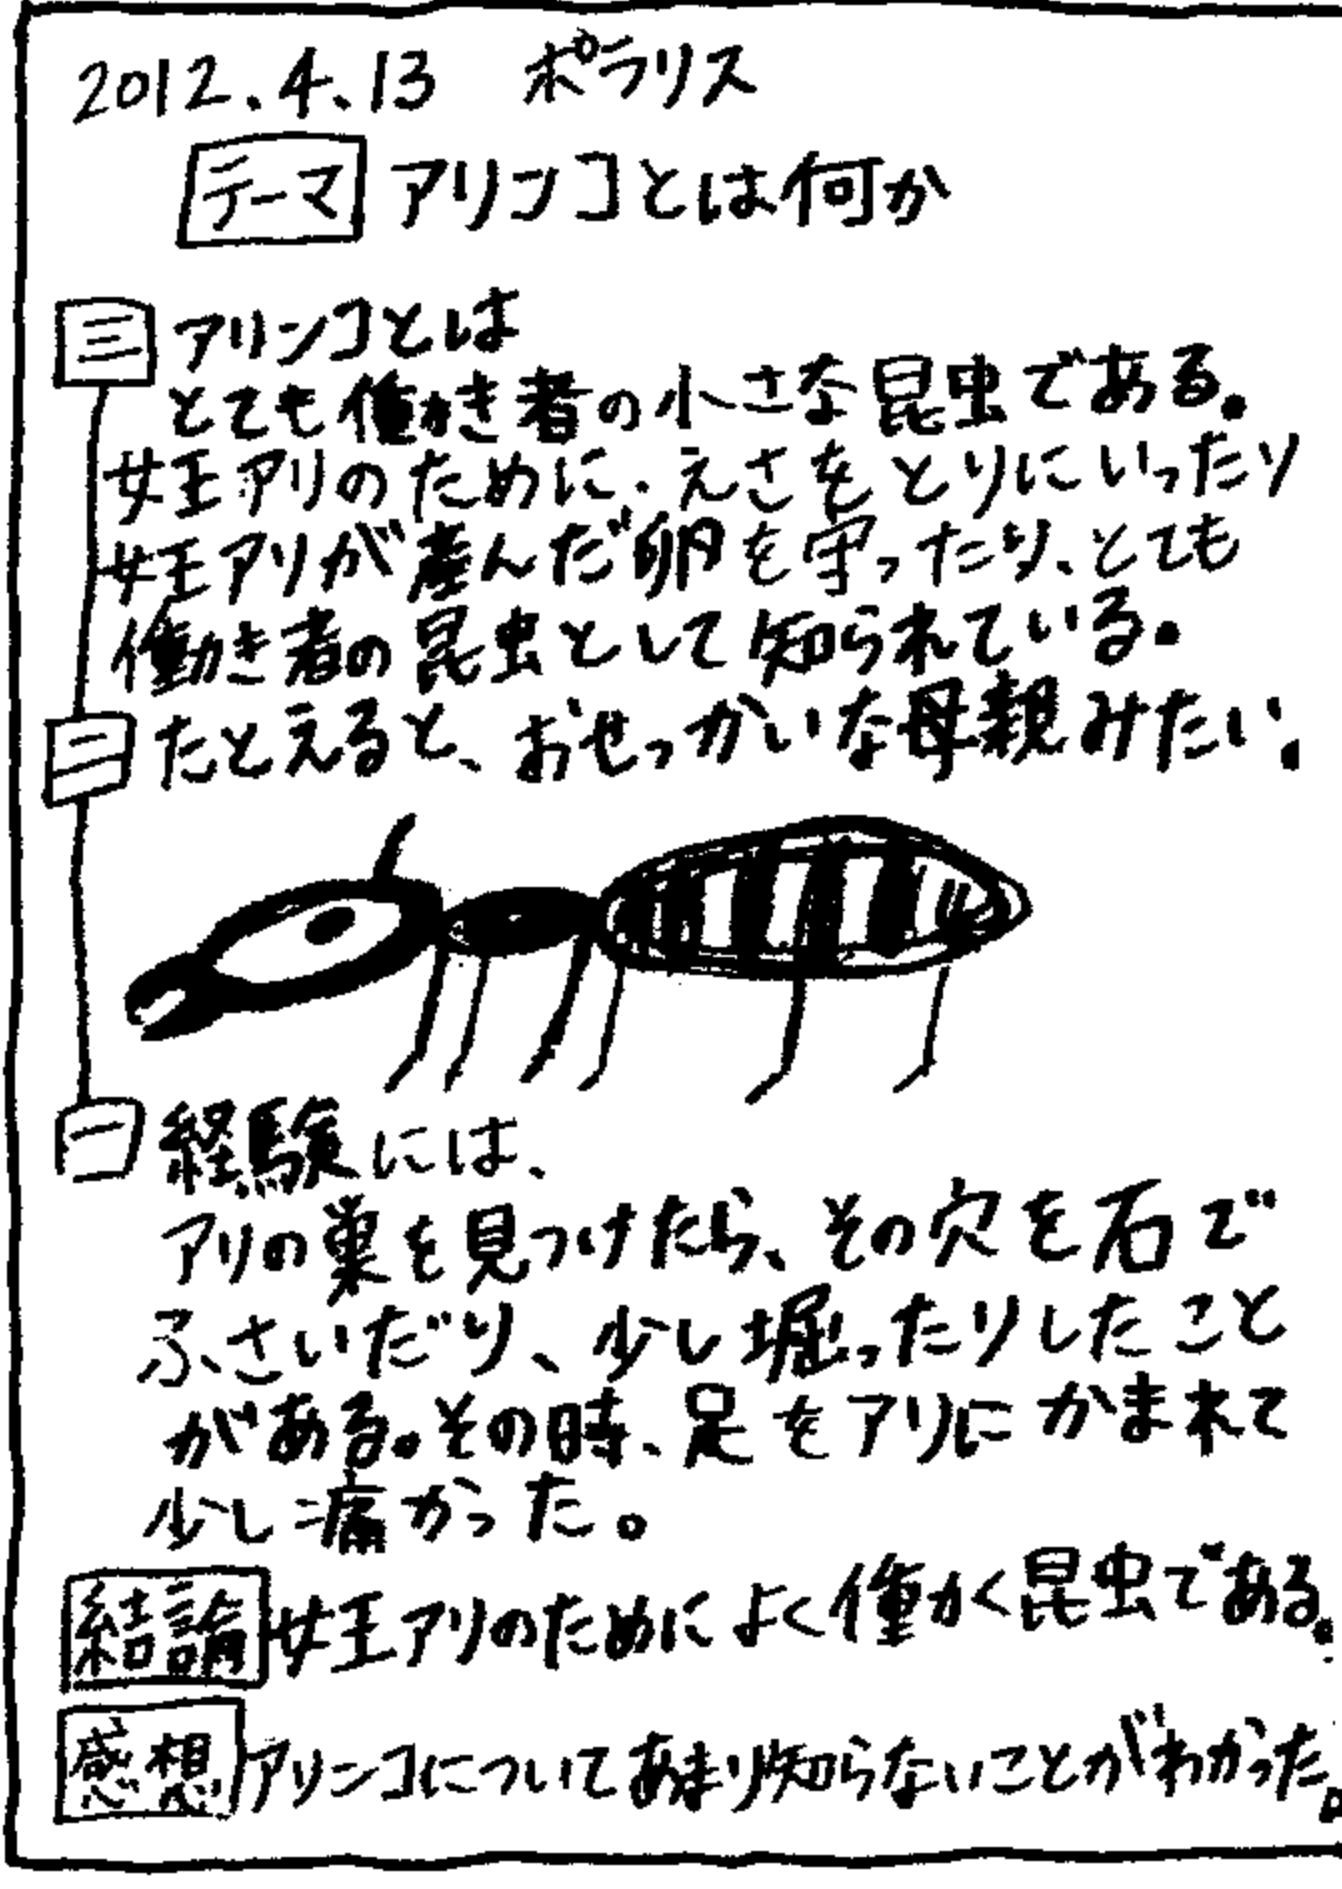 2012.4.13 ポラリス
テーマ アリンコとは何か
三 アリンコとは
とても働き者の小さな昆虫である。
女王アリのために、えさをとりにいったり
女王アリが産んだ卵を守ったり、とても
働き者の昆虫として知られている。
二 たとえると、おせっかいな母親みたい。
一 経験には、
アリの巣を見つけたら、その穴を石で
ふさいだり、少し堀ったりしたこと
がある。その時、足をアリにかまれて
少し痛かった。
結論 女王アリのためによく働く昆虫である。
感想 アリンコについてあまり知らないことがわかった。